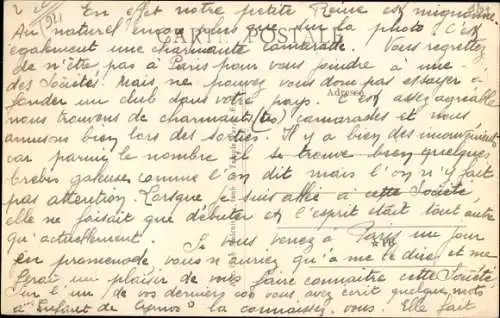 2 1921 En effet notre petite Reine est mignonne.
Au naturel encore plus que sur la photo C'est
CARTE POSTALE
également une charmante camarade. Vous regrettez
de n'être pas à Paris pour vous joindre à une
des Sociétés. Mais ne pouvez vous donc pas essayer à
Adresse
fonder un club dans votre pays. C'est assez agréable
nous trouvons de charmants (tes) camarades et nous
amusons bien lors des sorties. Il y a bien des inconvénients
car parmi le nombre il se trouve bien quelques
brebis galeuse comme l'on dit mais l'on n'y fait
pas attention. Lorsque je suis allé à cette Société,
elle ne faisait que débuter et l'esprit était tout autre
qu'actuellement. Si vous venez à Paris un jour
en promenade vous n'aurez qu'à me le dire et me
serai un plaisir de vous faire connaître cette Société
Sur l'un de vos derniers vous avez écrit quelques mots
à "Enfant de Cyrnos" la connaissez-vous. Elle fait